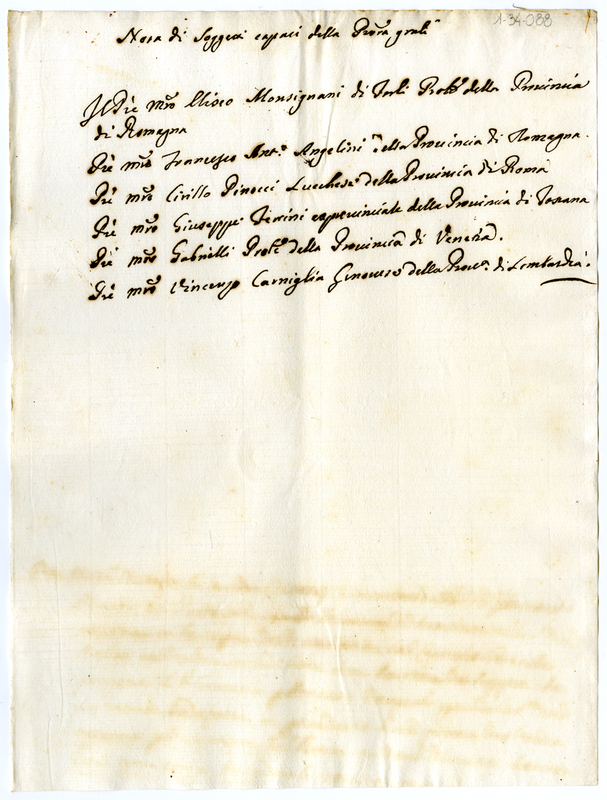 1-34-088
Nota di Soggetti capaci della Procra gnrale
Il Pre Mro Eliseo Monsignani di Forlì Prole della Provincia
di Romagna
Pre Mro Francesco Anto Angelini della Provincia di Romagna.
Pre mro Cirillo Pinocci Lucchese della Provincia di Roma
Pre mro Giuseppe Terrini exprovinciale della Provincia di Toscana
Pre mro Gabrielli Prole della Provincia di Venezia.
Pre mro Vincenzo Carniglia Genovese della Prova di Lombardia.